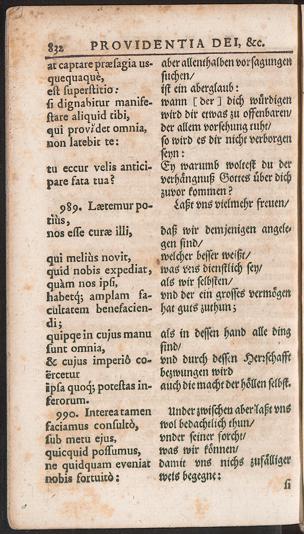 832 PROVIDENTIA DEI, &c.
at captare præsagia us-
quequaquè,
est superstitio:
si dignabitur manife-
stare aliquid tibi,
qui providet omnia,
non latebit te:
tu eccur velis antici-
pare fata tua?
989. Lætemur po-
tiùs,
nos esse curæ illi,
qui meliùs novit,
quid nobis expediat,
quàm nos ipsi,
habetq; amplam fa-
cultatem benefacien-
di;
quipqe in cujus manu
sunt omnia,
& cujus imperiô co-
ërcetur
ipsa quoq; potestas in-
ferorum.
990. Interea tamen
faciamus consultò,
sub metu ejus,
quicquid possumus,
ne quidquam eveniat
nobis fortuitò:
aber allenthalben vorsagungen
suchen/
ist ein aberglaub:
wann [ der ] dich würdigen
wird dir etwas zu offenbaren/
der allem vorsehung ruht/
so wird es dir nicht verborgen
seyn:
Ey warumb woltest du der
verhängnuß Gottes über dich
zuvor kommen?
Laßt vns vielmehr freuen/
daß wir demjenigen angele-
gen sind/
welcher besser weißt/
was vns dienstlich sey/
als wir selbsten/
vnd der ein grosses vermögen
hat guts zuthun;
als in dessen hand alle ding
sind/
vnd durch dessen Herrschafft
bezwungen wird
auch die macht der höllen selbst.
Underzwischen aber laßt vns
wol bedachtlich thun/
vnder seiner forcht/
was wir können/
damit vns nichs zufälliger
weis begegne:
si